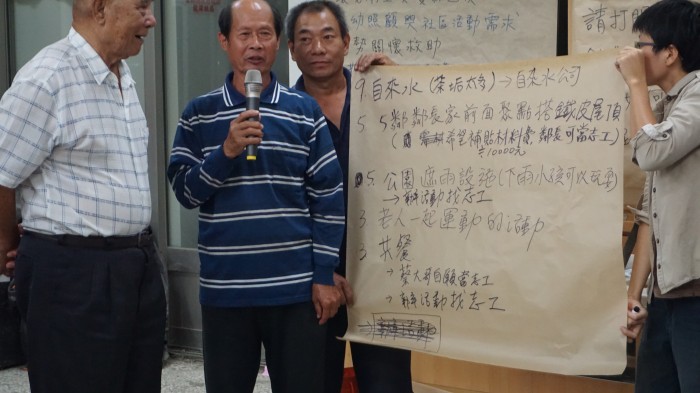 幼照顧與社區活動需求
關懷救助
請打開
9. 自來水(茶垢太多)→自來水公司
5. 5鄰鄰長家前面據點搭鐵皮屋頂
(希望補貼材料費 鄰長可當志工)
±10000元
5. 公園遮雨設施(下雨小孩可以玩耍)
→辦活動找志工
3. 老人一起運動的活動
3 共餐
→蔡大哥自願當志工
→辦活動找志工